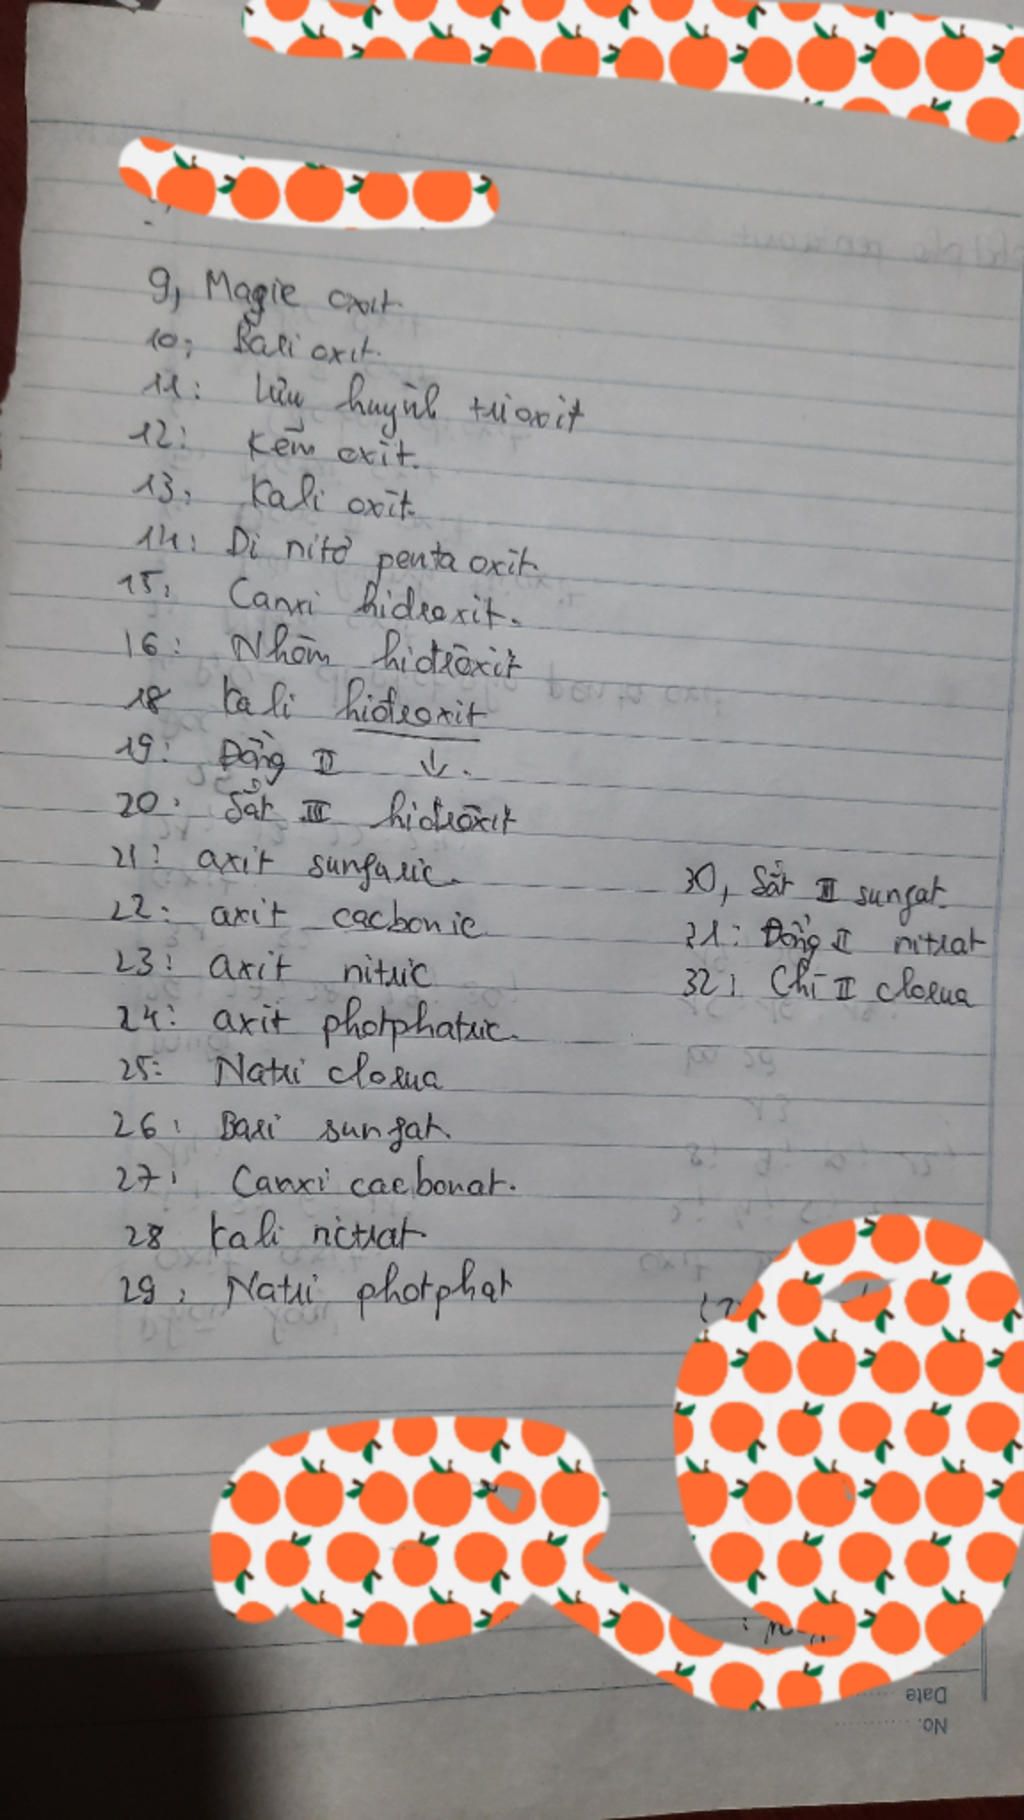 9, Magie oxit
10: Bari oxit.
11: Lưu huỳnh trioxit
12: Kẽm oxit.
13: Kali oxit.
14: Di nitơ penta oxit.
15: Canxi hidroxit.
16: Nhôm hidrôxit
18 Kali hidroxit
19: Đồng II ↓.
20: Sắt III hidrôxit
21: axit sunfuric.
22: axit cacbonic
23: axit nitric
24: axit photphatric.
25: Natri clorua
26: Bari sunfat.
27: Canxi cacbonat.
28 Kali nitrat
29: Natri photphat
30, Sắt II sunfat.
31: Đồng II nitrat
32: Chì II clorua
Date
No.